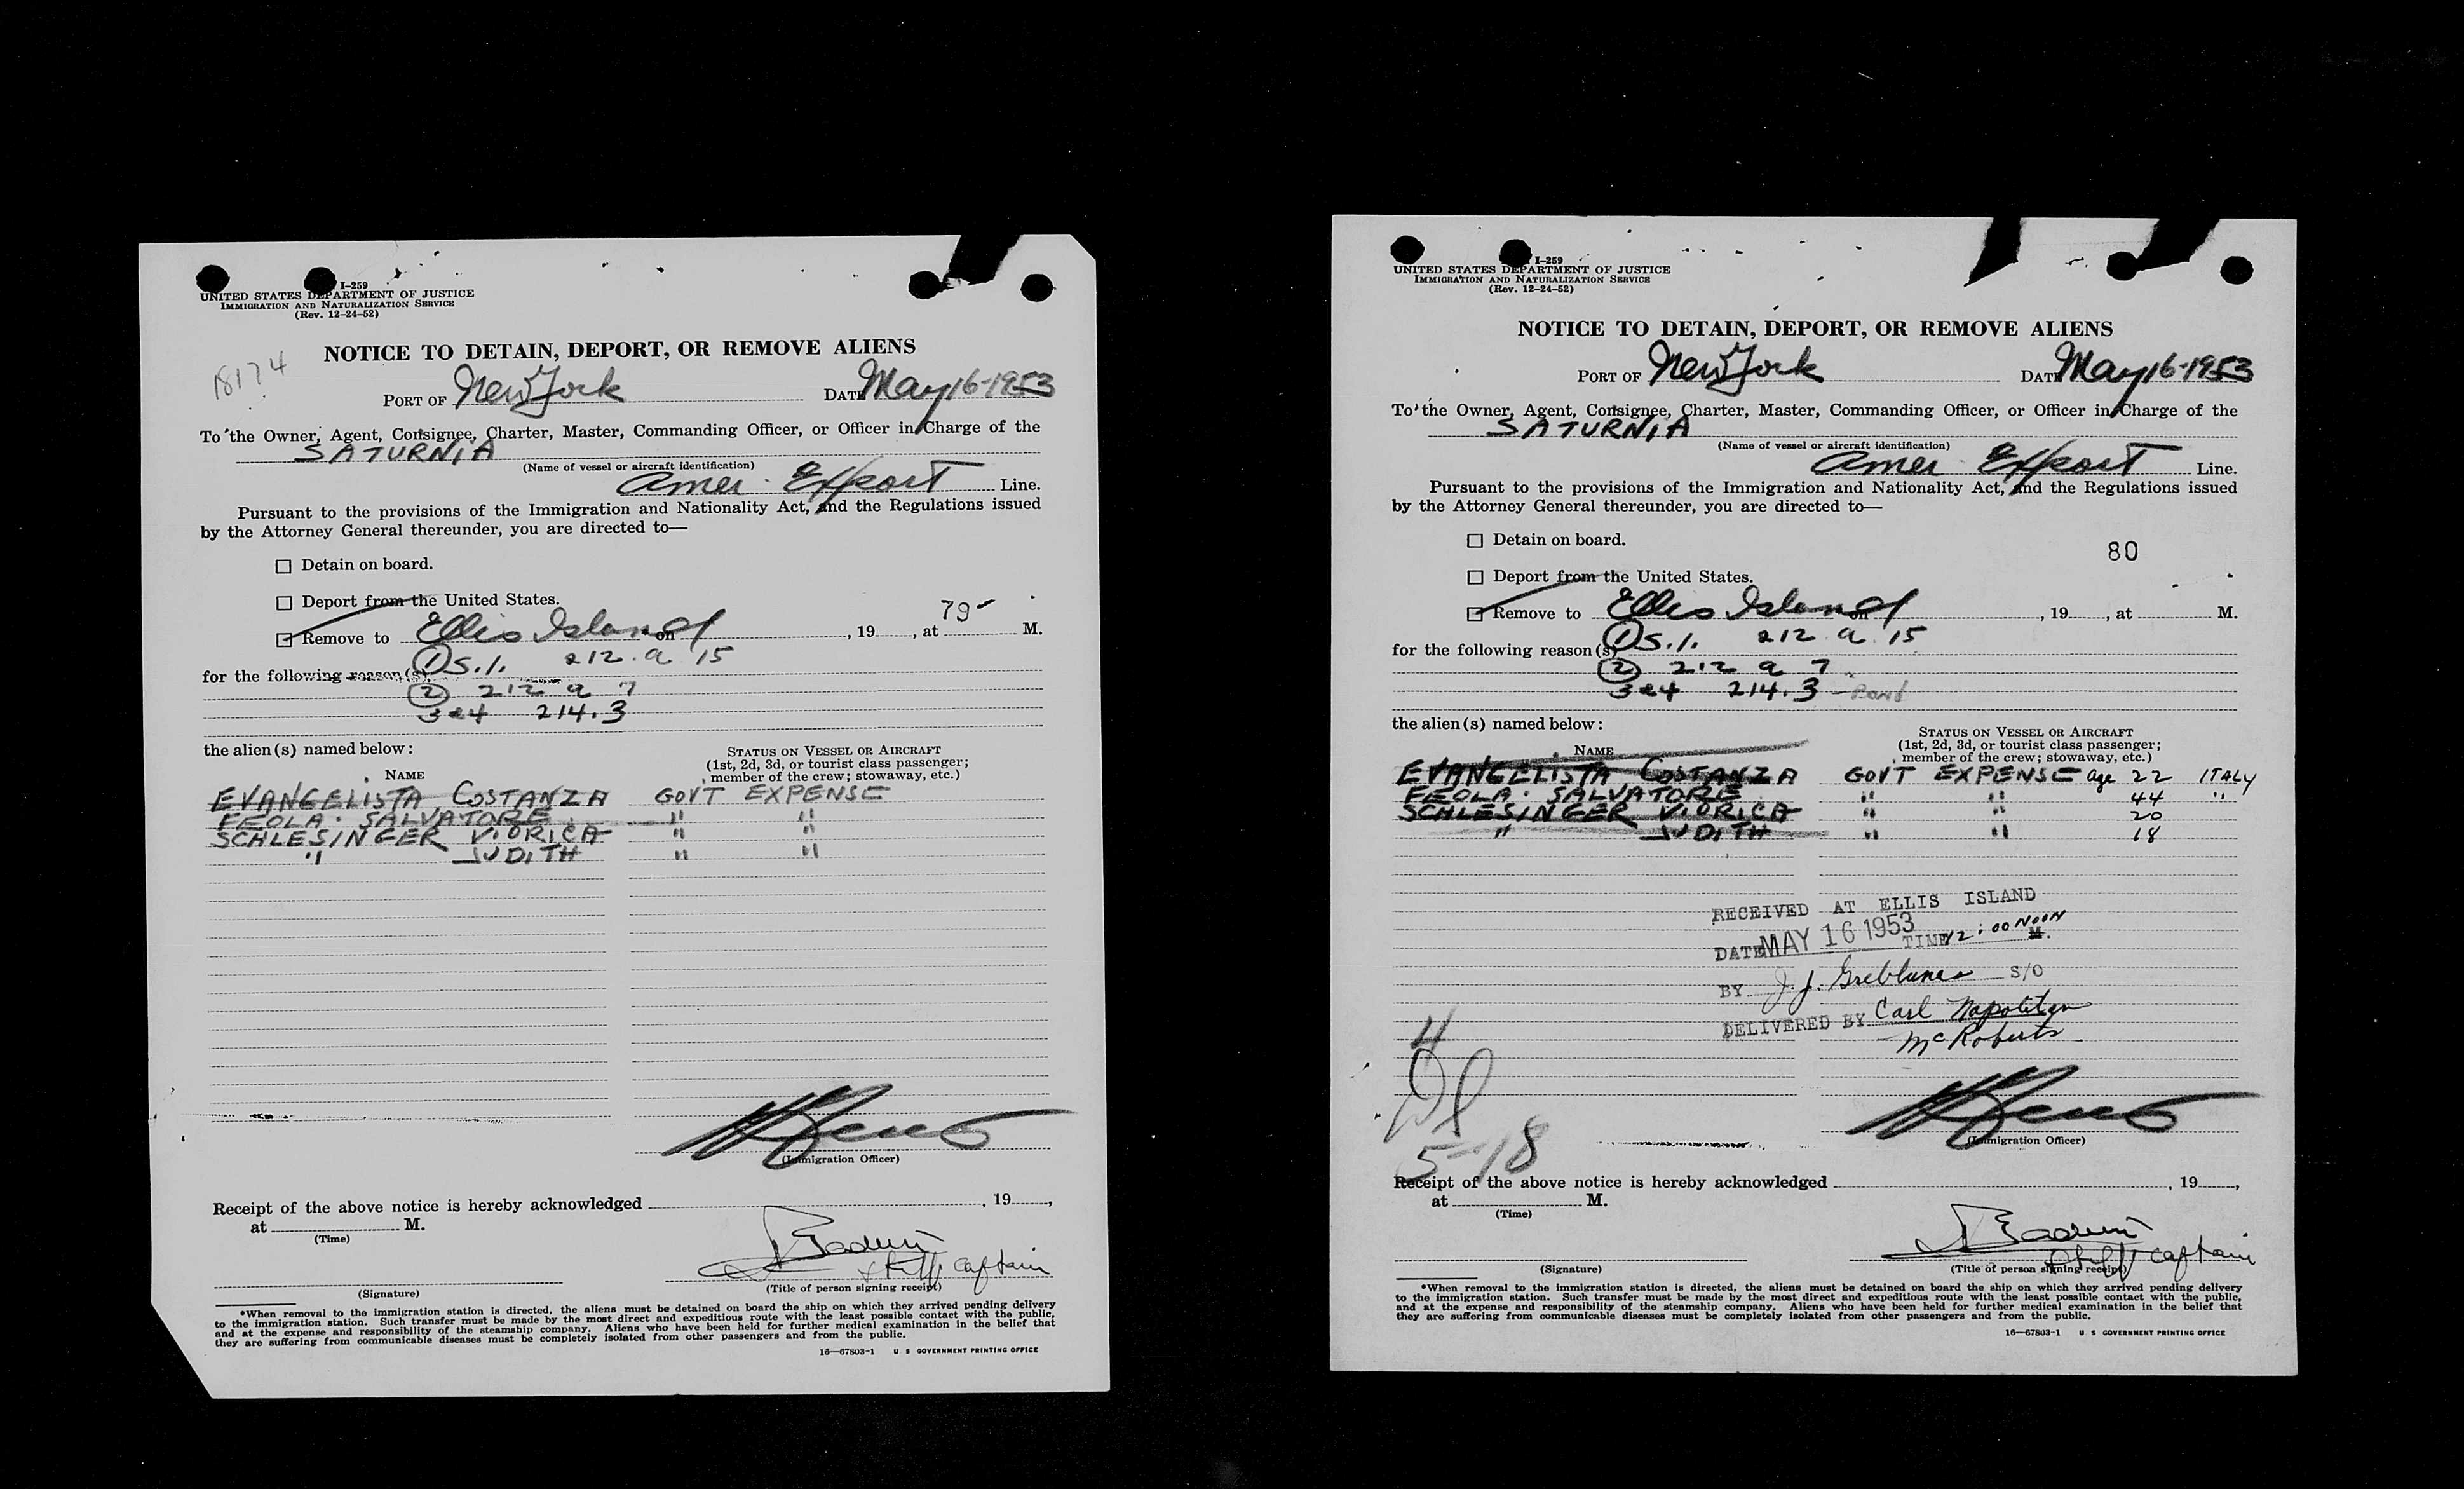 I-259
UNITED STATES DEPARTMENT OF JUSTICE
IMMIGRATION AND NATURALIZATION SERVICE
(Rev. 12-24-52)
NOTICE TO DETAIN, DEPORT, OR REMOVE ALIENS
18174
PORT OF New York DATE May 16-1953
To the Owner, Agent, Consignee, Charter, Master, Commanding Officer, or Officer in Charge of the
SATURNIA
(Name of vessel or aircraft identification)
Amer. Export Line.
Pursuant to the provisions of the Immigration and Nationality Act, and the Regulations issued
by the Attorney General thereunder, you are directed to—
☐ Detain on board.
☐ Deport from the United States.
79-
☐ Remove to Ellis Island on , 19 , at M.
for the following reason(s) ① S.I. 212. a 15
② 212 a 7
3 e 4 214.3
the alien(s) named below:
STATUS ON VESSEL OR AIRCRAFT
(1st, 2d, 3d, or tourist class passenger;
member of the crew; stowaway, etc.)
NAME
EVANGELISTA, COSTANZA GOVT EXPENSE
FEOLA. SALVATORE " "
SCHLESINGER VIORICA " "
" JUDITH " "
(Immigration Officer)
Receipt of the above notice is hereby acknowledged , 19 ,
at M.
(Time)
Staff Captain
(Signature) (Title of person signing receipt)
*When removal to the immigration station is directed, the aliens must be detained on board the ship on which they arrived pending delivery
to the immigration station. Such transfer must be made by the most direct and expeditious route with the least possible contact with the public,
and at the expense and responsibility of the steamship company. Aliens who have been held for further medical examination in the belief that
they are suffering from communicable diseases must be completely isolated from other passengers and from the public.
16—67803-1 U S GOVERNMENT PRINTING OFFICE
I-259
UNITED STATES DEPARTMENT OF JUSTICE
IMMIGRATION AND NATURALIZATION SERVICE
(Rev. 12-24-52)
NOTICE TO DETAIN, DEPORT, OR REMOVE ALIENS
PORT OF New York DATE May 16-1953
To the Owner, Agent, Consignee, Charter, Master, Commanding Officer, or Officer in Charge of the
SATURNIA
(Name of vessel or aircraft identification)
Amer. Export Line.
Pursuant to the provisions of the Immigration and Nationality Act, and the Regulations issued
by the Attorney General thereunder, you are directed to—
☐ Detain on board.
80
☐ Deport from the United States.
☐ Remove to Ellis Island on , 19 , at M.
for the following reason(s) ① S.I. 212 a 15
② 212 a 7
3 e 4 214.3
the alien(s) named below:
STATUS ON VESSEL OR AIRCRAFT
(1st, 2d, 3d, or tourist class passenger;
member of the crew; stowaway, etc.)
NAME
EVANGELISTA, COSTANZA GOVT EXPENSE age 22 ITALY
FEOLA. SALVATORE " " 44 "
SCHLESINGER VIORICA " " 20
" JUDITH " " 18
RECEIVED AT ELLIS ISLAND
DATE MAY 16 1953 TIME 12:00 NOON M.
BY J. J. S/O
DELIVERED BY Carl Napolitan
McRoberts
4
5-18
(Immigration Officer)
Receipt of the above notice is hereby acknowledged , 19 ,
at M.
(Time)
Staff Captain
(Signature) (Title of person signing receipt)
*When removal to the immigration station is directed, the aliens must be detained on board the ship on which they arrived pending delivery
to the immigration station. Such transfer must be made by the most direct and expeditious route with the least possible contact with the public,
and at the expense and responsibility of the steamship company. Aliens who have been held for further medical examination in the belief that
they are suffering from communicable diseases must be completely isolated from other passengers and from the public.
16—67803-1 U S GOVERNMENT PRINTING OFFICE